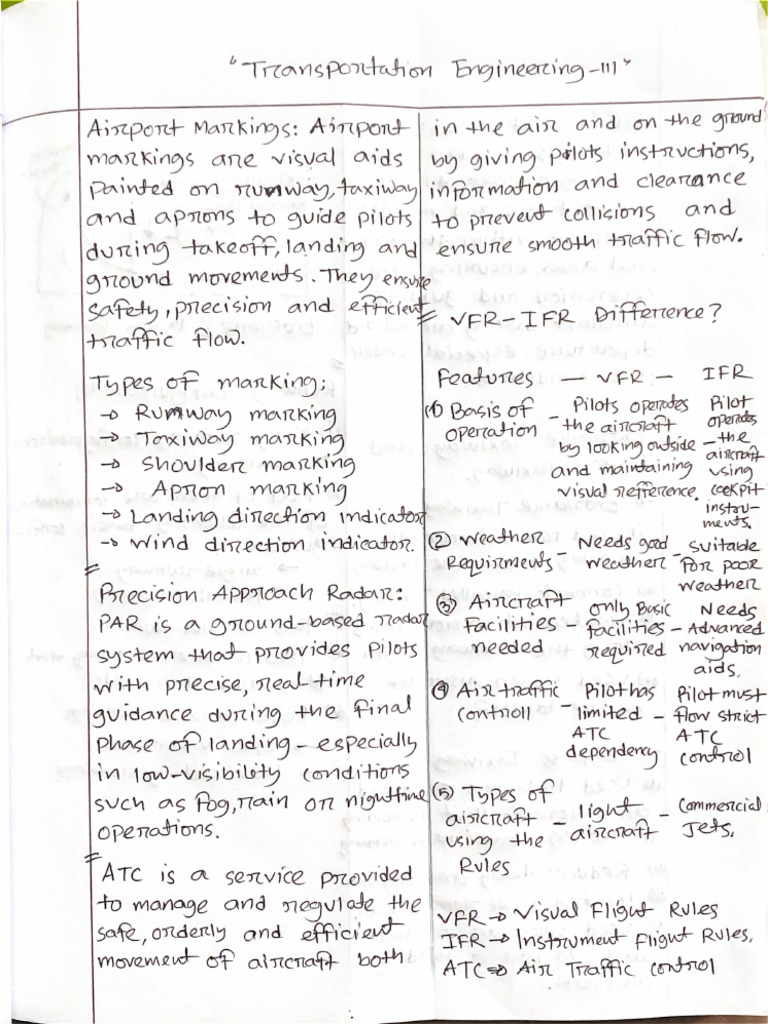 "Transportation Engineering-III"
Airport Markings: Airport
markings are visual aids
painted on runway, taxiway
and aprons to guide pilots
during takeoff, landing and
ground movements. They ensure
safety, precision and efficient
traffic flow.
Types of marking:
→ Runway marking
→ Taxiway marking
→ Shoulder marking
→ Apron marking
→ Landing direction indicator
→ Wind direction indicator.
=
Precision Approach Radar:
PAR is a ground-based radar
system that provides pilots
with precise, real time
guidance during the final
phase of landing - especially
in low-visibility conditions
such as fog, rain or nighttime
operations.
=
ATC is a service provided
to manage and regulate the
safe, orderly and efficient
movement of aircraft both
in the air and on the ground
by giving pilots instructions,
information and clearance
to prevent collisions and
ensure smooth traffic flow.
= VFR-IFR Difference?
Features — VFR — IFR
(1) Basis of – Pilots operates Pilot
operation the aircraft operates
by looking outside – the
and maintaining aircraft
visual refference. using
cockpit
instru-
ments.
(2) Weather
Requirments – Needs good – suitable
weather for poor
weather
(3) Aircraft only Basic Needs
Facilities – facilities – Advanced
needed required navigation
aids.
(4) Air traffic – Pilot has Pilot must
controll limited – flow strict
ATC ATC
dependency control
(5) Types of
aircraft – light – Commercial
using the aircraft Jets.
Rules
VFR → Visual Flight Rules
IFR → Instrument Flight Rules.
ATC ⇒ Air Traffic control